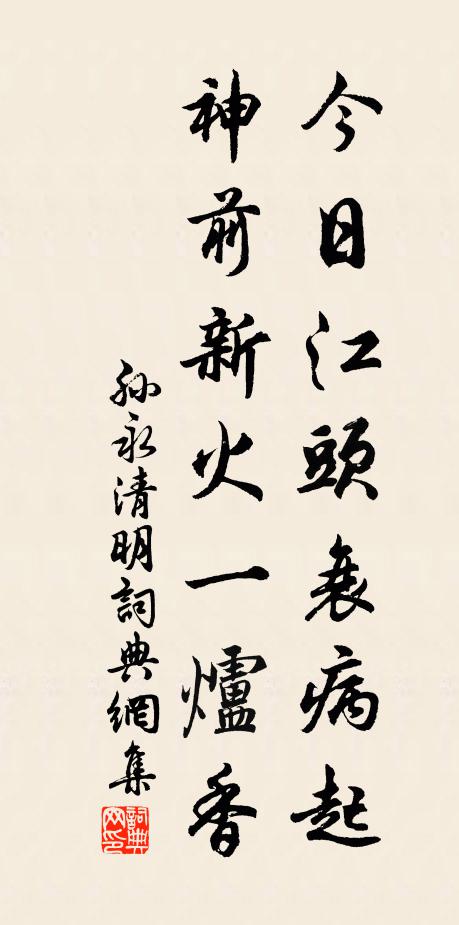 今日江頭衰病起
神前新火一爐香
孫永清明詞典網集
詞典网印